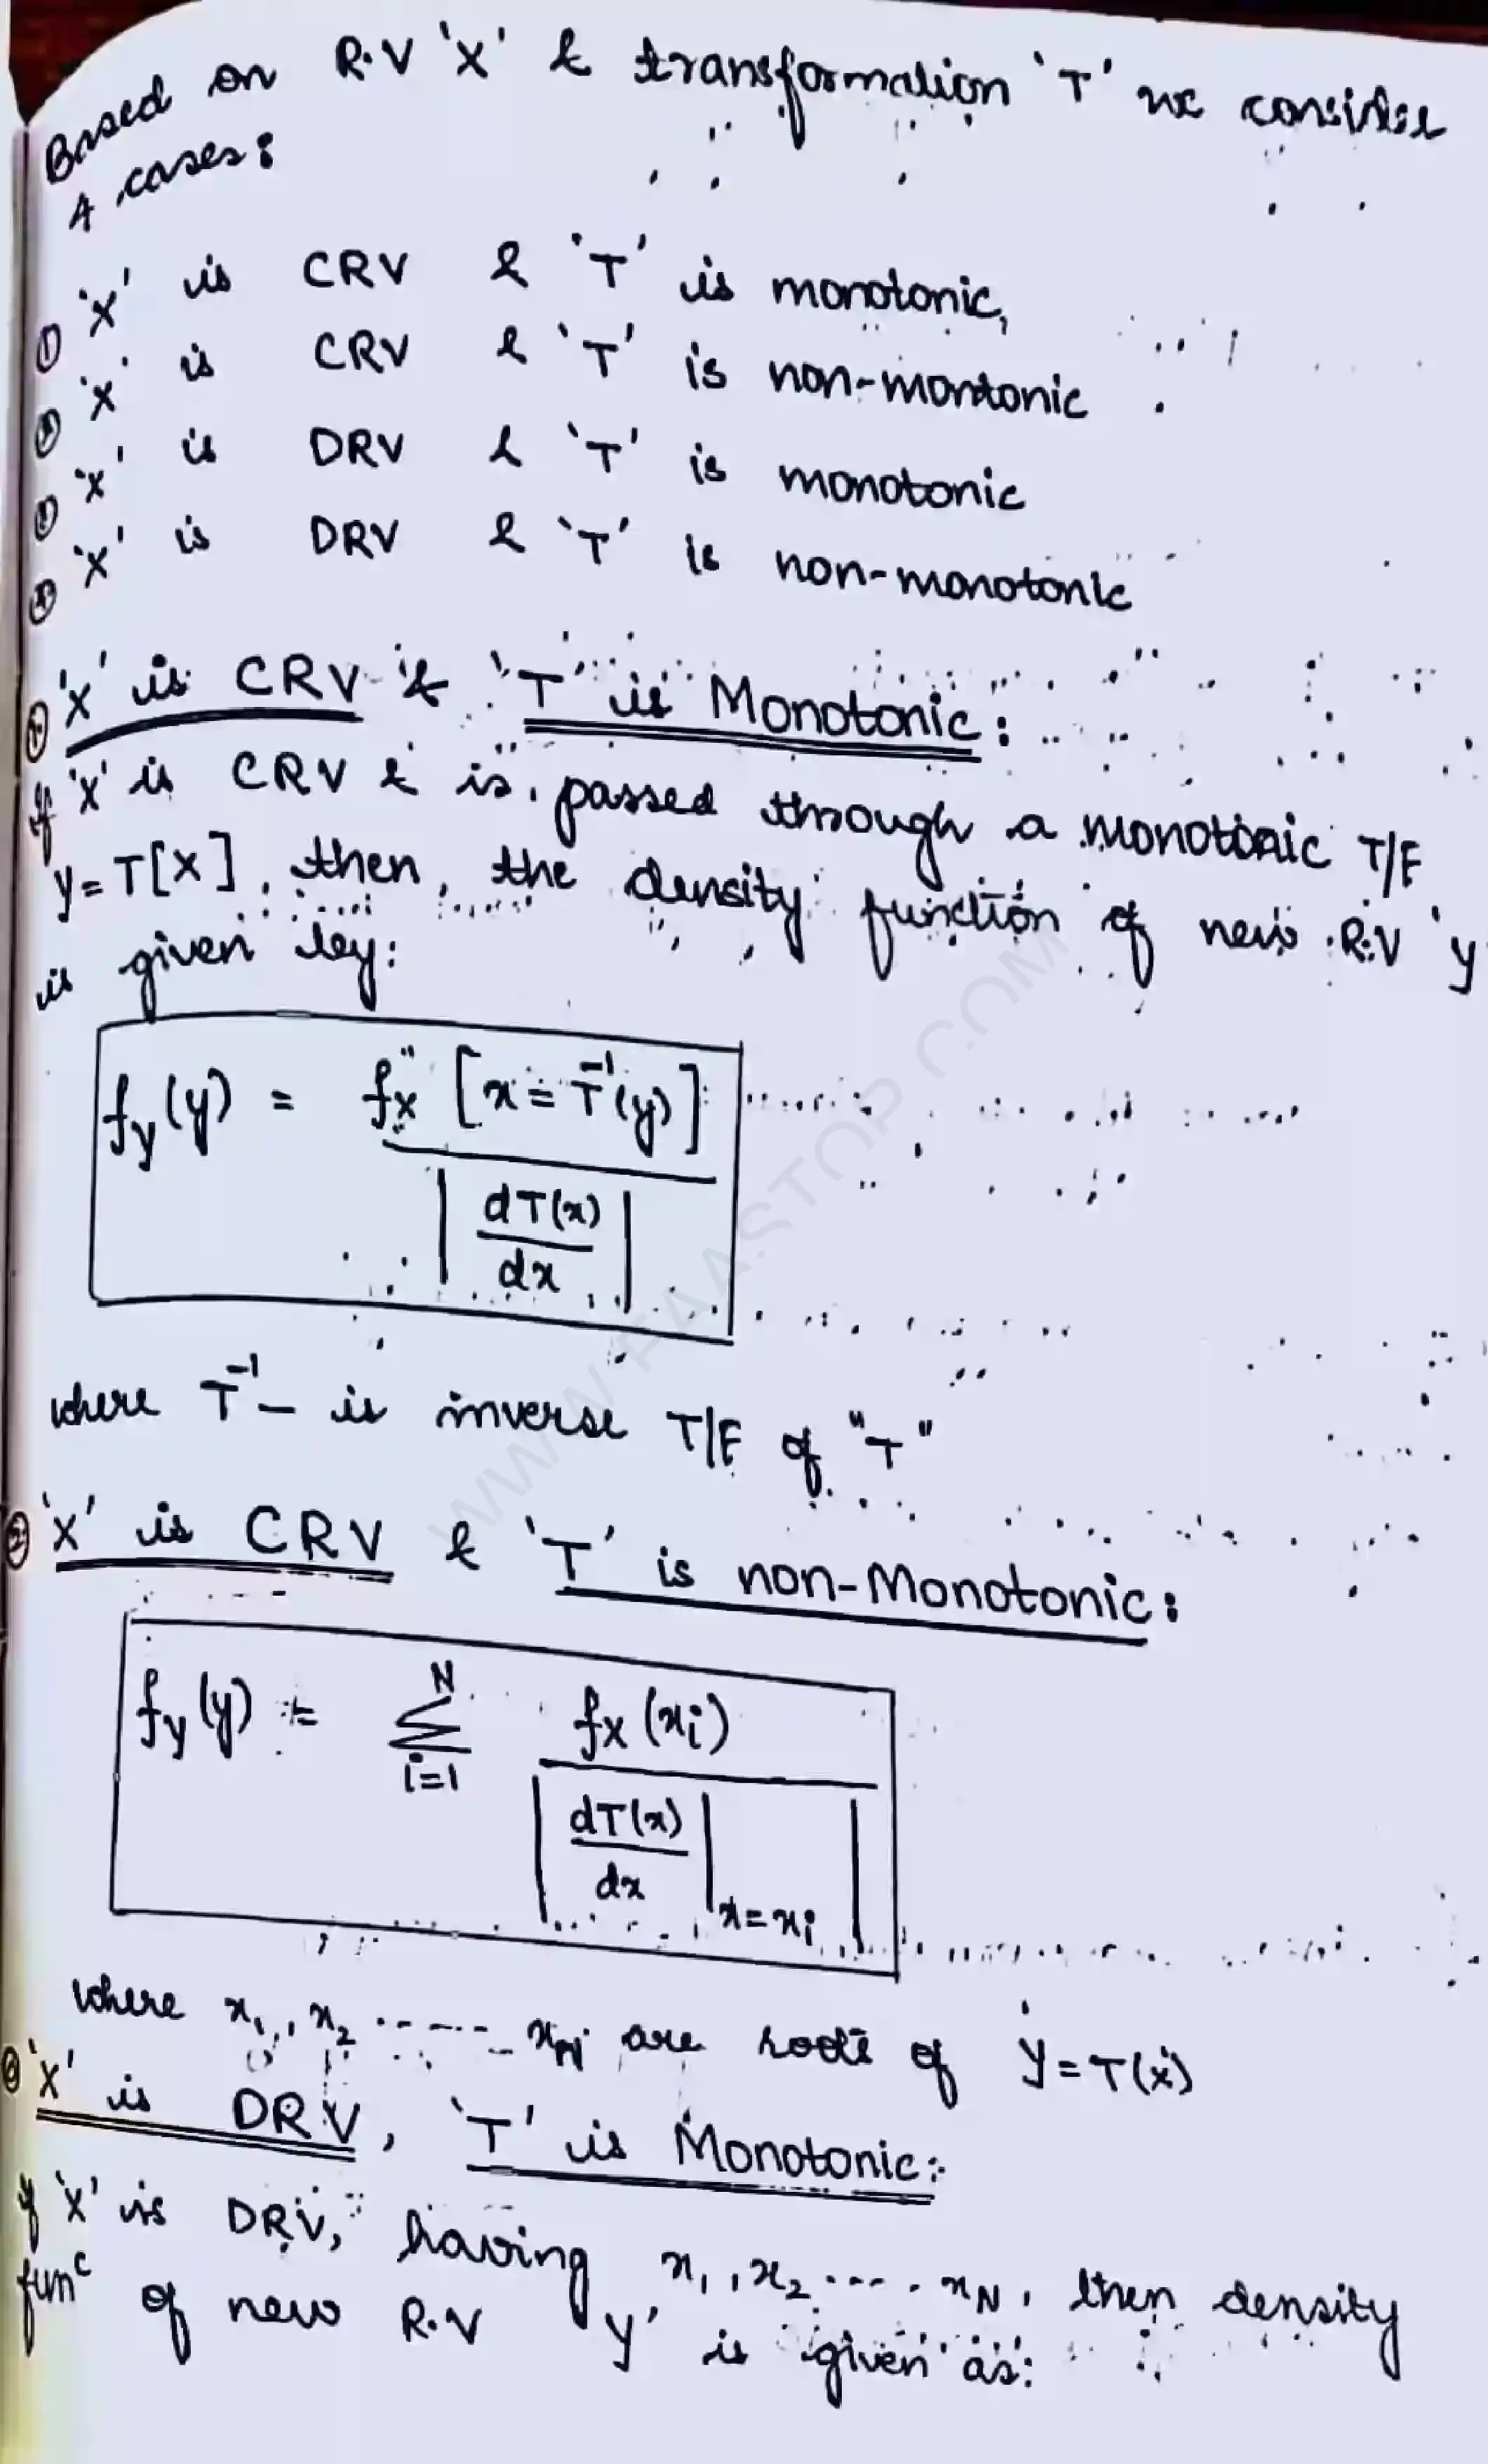 Based on R.V 'X' & transformation 'T' we consider
4 cases:
① 'X' is CRV & 'T' is monotonic,
② 'X' is CRV & 'T' is non-monotonic
③ 'X' is DRV & 'T' is monotonic
④ 'X' is DRV & 'T' is non-monotonic
① 'X' is CRV & 'T' is Monotonic:
If 'X' is CRV & is passed through a monotonic T/F
y = T[X], then, the density function of new R.V 'y
is given by:
f_y(y) = f_X [x = T⁻¹(y)]
| dT(x)/dx |
where T⁻¹ – is inverse T/F of "T"
② 'X' is CRV & 'T' is non-Monotonic:
f_y(y) = Σ_{i=1}^{N} f_X(x_i)
| dT(x)/dx |_{x=x_i} |
where x₁, x₂ ------ x_N are roots of y = T(x)
③ 'X' is DRV, 'T' is Monotonic:
If 'X' is DRV, having x₁, x₂ .... x_N, then density
funᶜ of new R.V 'y' is given as:
WWW.FAASTOP.COM